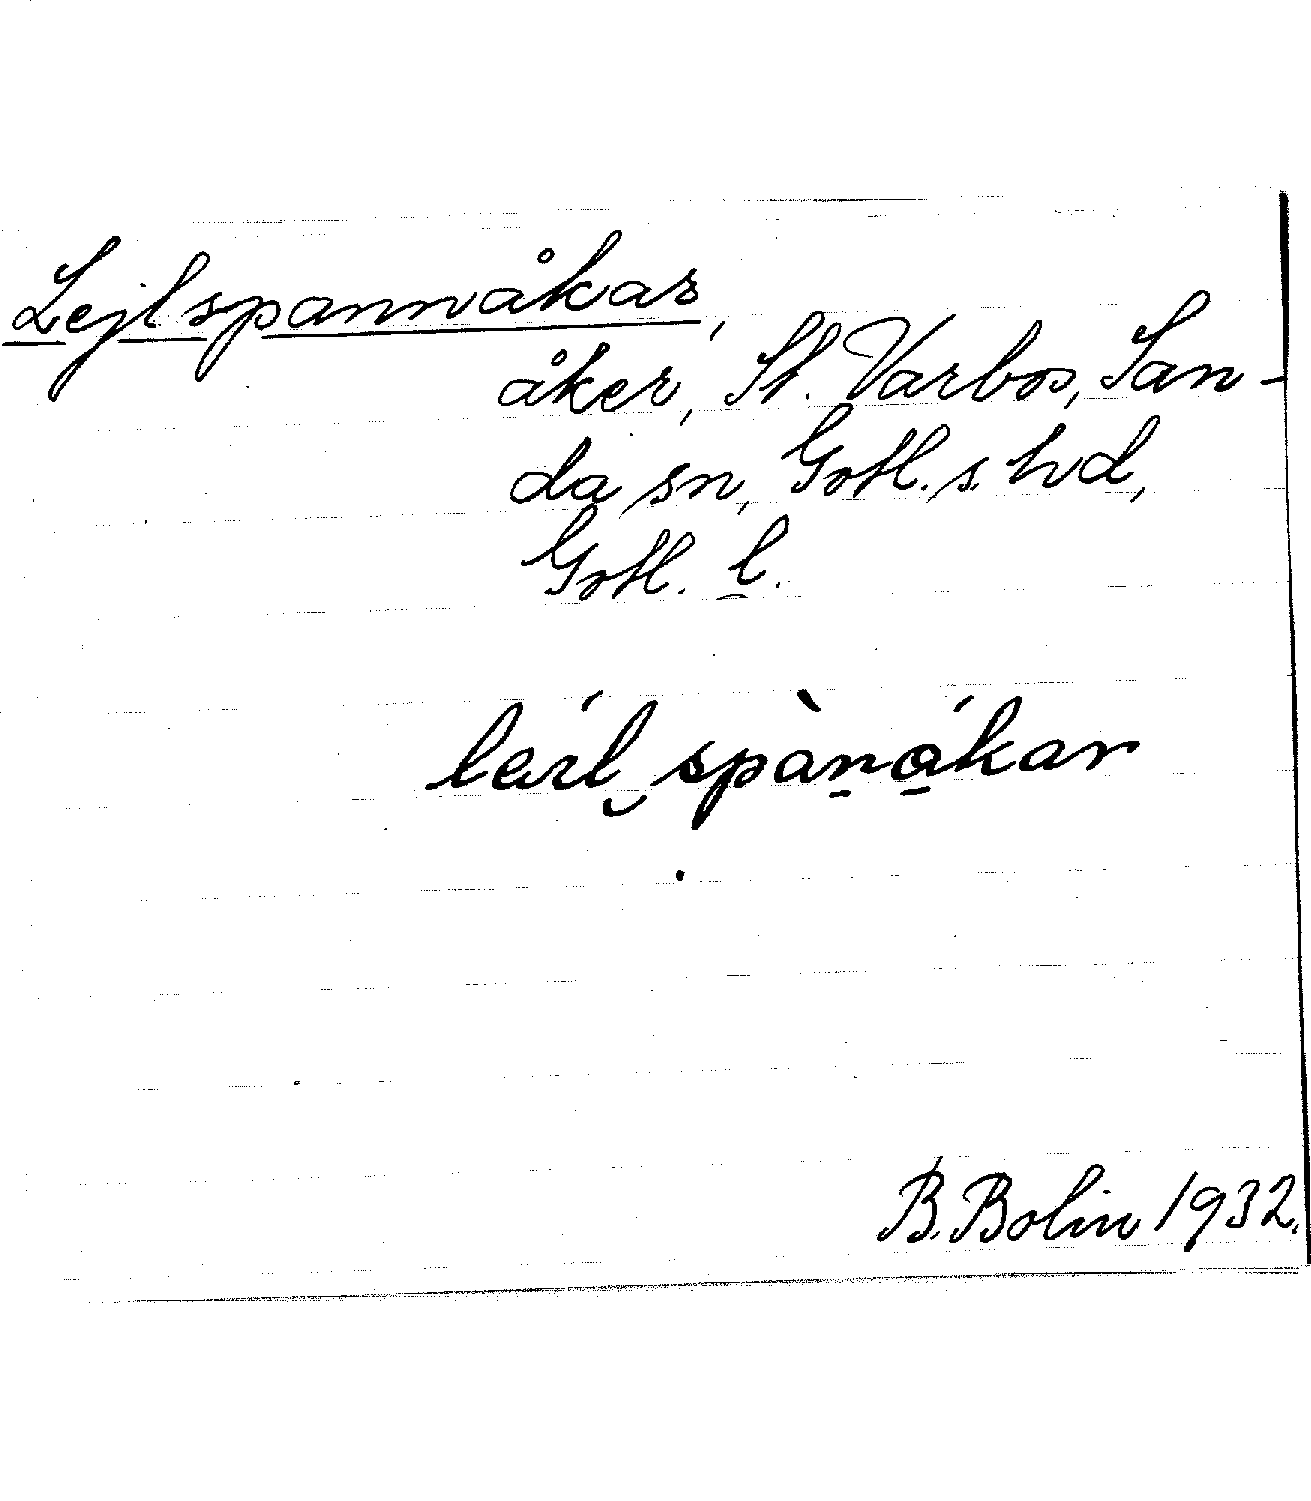 Lejlspannåkar,
åker, St. Varbos, San-
da sn, Gotl. s. hd,
Gotl. l.
B. Bolin 1932.